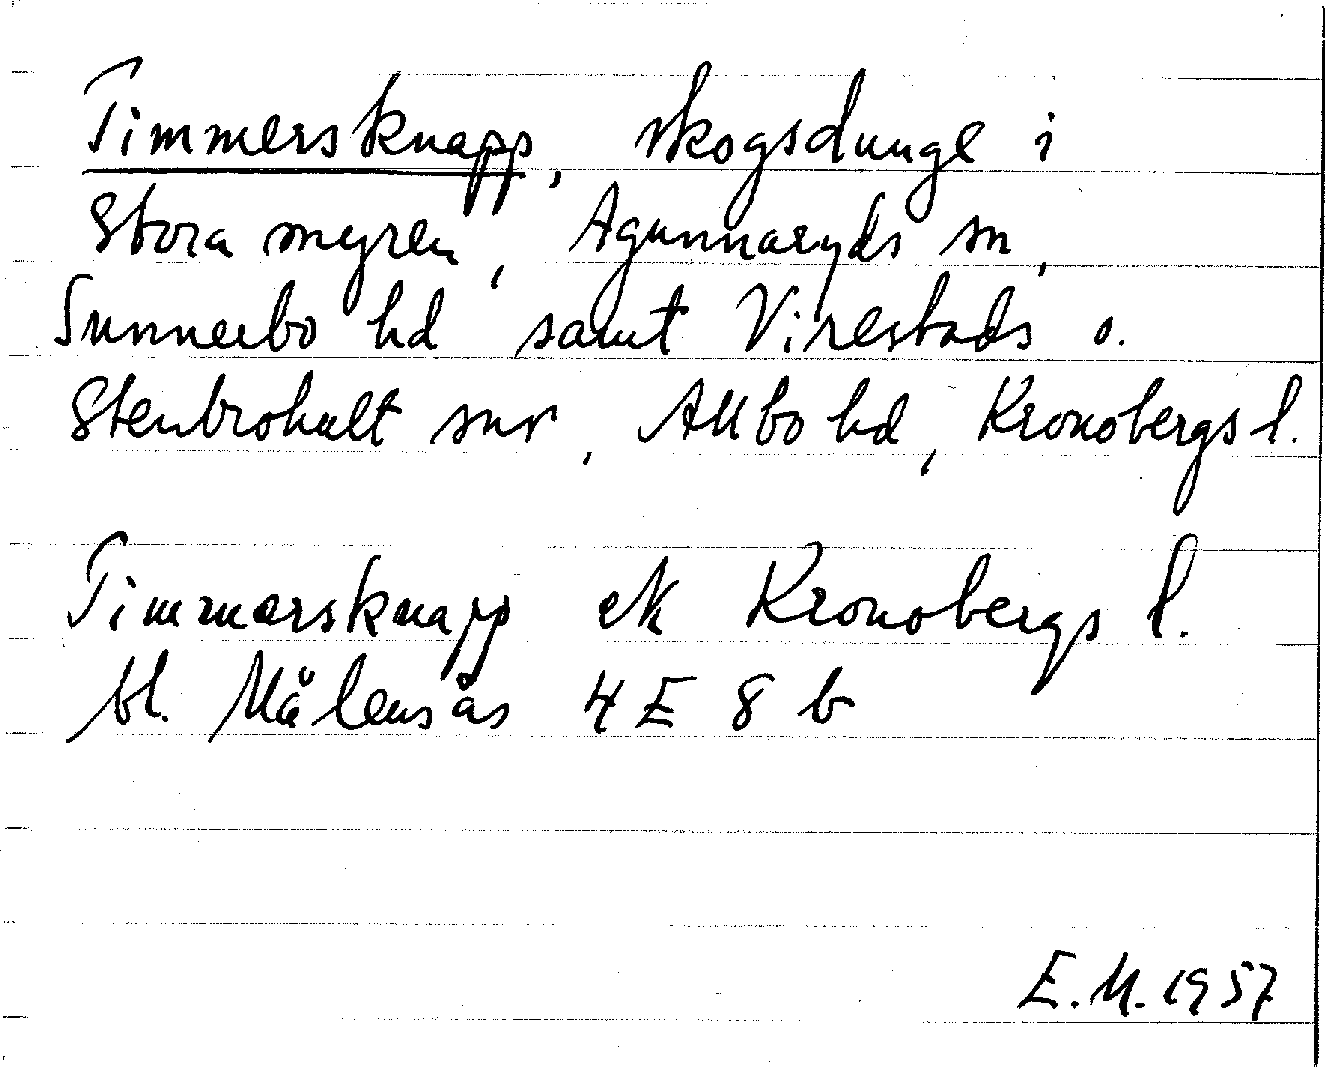 Timmersknapp, skogsdunge i
Stora myren, Agunnaryds sn,
Sunnerbo hd samt Virestads o.
Stenbrohult snr, Allbo hd, Kronobergs l.
Timmersknapp ek Kronobergs l.
bl. Målensås 4E 8 b
E.M. 1957